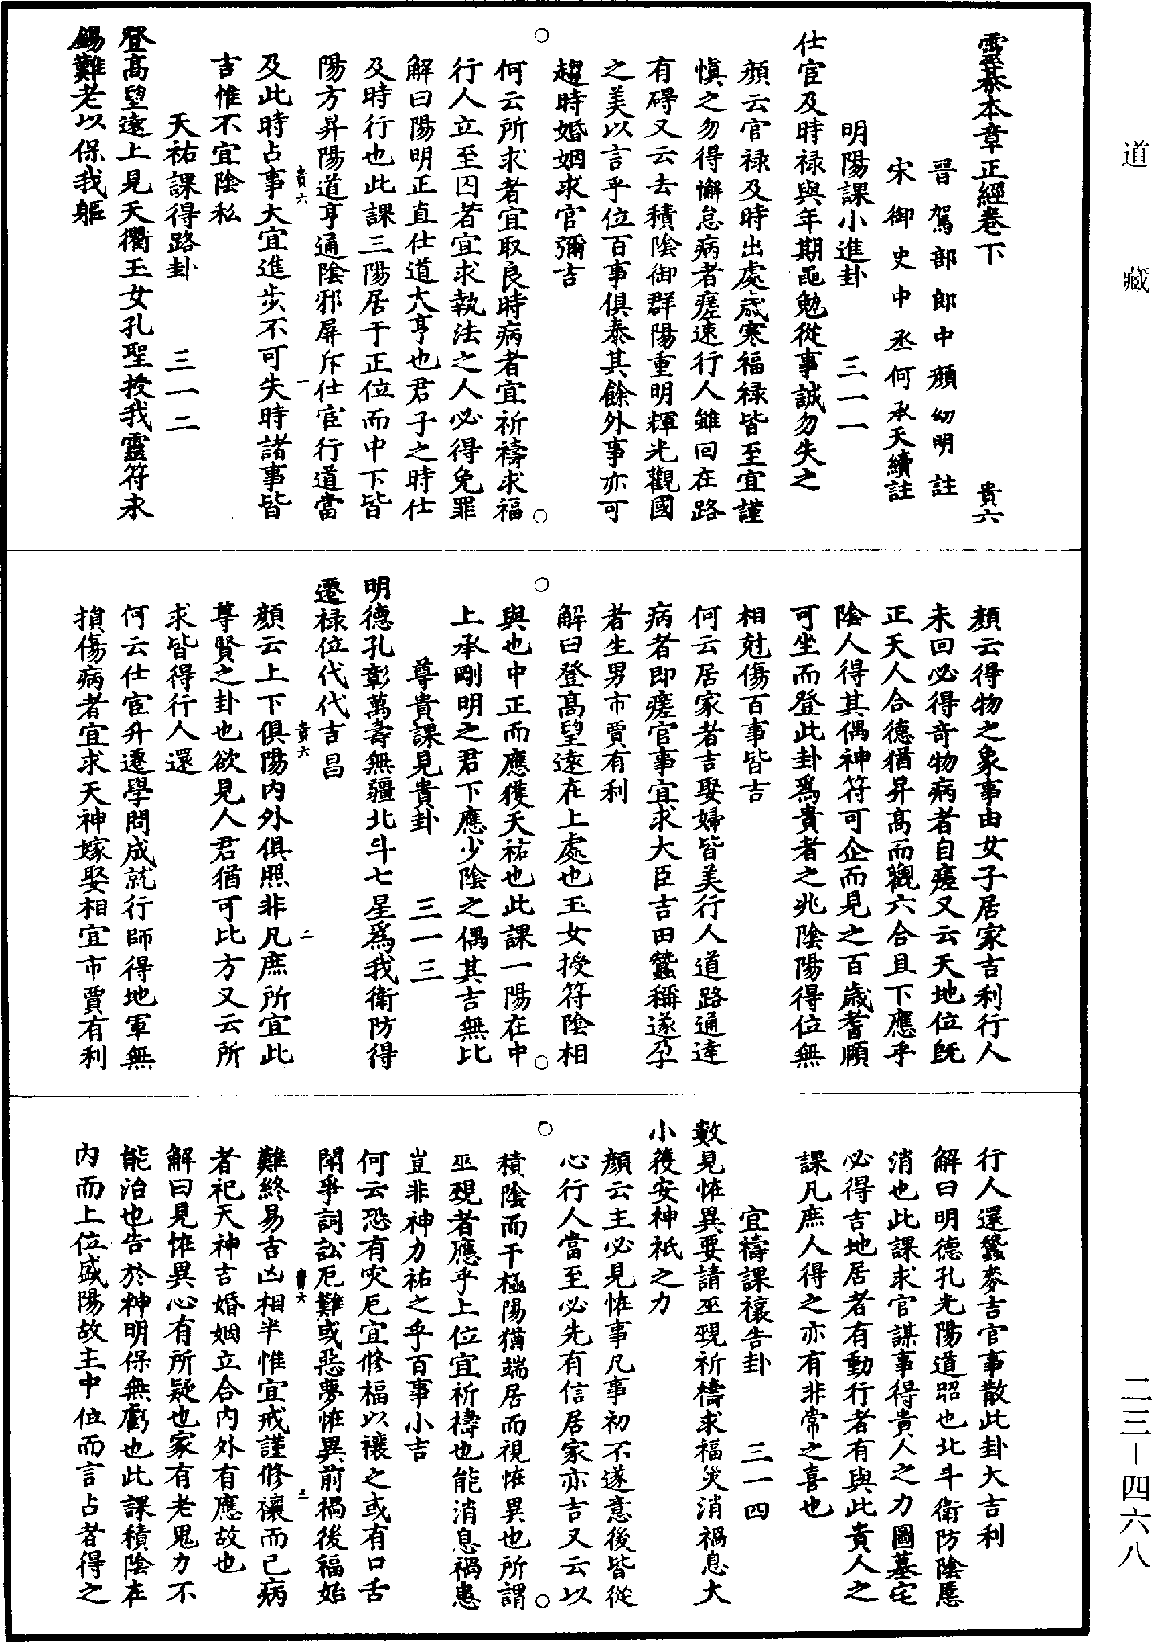 道藏
靈棊本章正經卷下　貴六
晉駕部郎中顏幼明註
宋御史中丞何承天續註
明陽課小進卦　三一一
仕宦及時祿與年期黽勉從事誠勿失之
顏云官祿及時出處歲寒福祿皆至宜謹
慎之勿得懈怠病者瘥速行人雖回在路
有碍又云去積陰御群陽重明輝光觀國
之美以言乎位百事俱泰其餘外事亦可
趨時婚姻求官彌吉
何云所求者宜取良時病者宜祈禱求福
行人立至囚者宜求執法之人必得免罪
解曰陽明正直仕道大亨也君子之時仕
及時行也此課三陽居于正位而中下皆
陽方昇陽道亨通陰邪屏斥仕宦行道當
貴六　一
及此時占事大宜進步不可失時諸事皆
吉惟不宜陰私
天祐課得路卦　三一二
登高望遠上見天衢玉女孔聖授我靈符永
錫難老以保我軀
顏云得物之象事由女子居家吉利行人
未回必得奇物病者自瘥又云天地位既
正天人合德猶昇高而觀六合且下應乎
陰人得其偶神符可企而見之百歲耆頤
可坐而登此卦爲貴者之兆陰陽得位無
相尅傷百事皆吉
何云居家者吉娶婦皆美行人道路通達
病者即瘥官事宜求大臣吉田蠶稱遂孕
者生男市賈有利
解曰登高望遠在上處也玉女授符陰相
與也中正而應獲天祐也此課一陽在中
上承剛明之君下應少陰之偶其吉無比
尊貴課見貴卦　三一三
明德孔彰萬壽無疆北斗七星爲我衛防得
遷祿位代代吉昌
貴六　二
顏云上下俱陽內外俱照非凡庶所宜此
尊賢之卦也欲見人君猶可比方又云所
求皆得行人還
何云仕宦升遷學問成就行師得地軍無
損傷病者宜求天神嫁娶相宜市賈有利
行人還蠶麥吉官事散此卦大吉利
解曰明德孔光陽道昭也北斗衛防陰慝
消也此課求官謀事得貴人之力圖墓宅
必得吉地居者有動行者有與此貴人之
課凡庶人得之亦有非常之喜也
宜禱課禳告卦　三一四
數見恠異要請巫覡祈禱求福災消禍息大
小獲安神祇之力
顏云主必見恠事凡事初不遂意後皆從
心行人當至必先有信居家亦吉又云以
積陰而干極陽猶端居而視恠異也所謂
巫覡者應乎上位宜祈禱也能消息禍患
豈非神力祐之乎百事小吉
何云恐有災厄宜修福以禳之或有口舌
鬧爭詞訟厄難或惡夢恠異前禍後福始
貴六　三
難終易吉凶相半惟宜戒謹修禳而已病
者祀天神吉婚姻立合內外有應故也
解曰見恠異心有所疑也家有老鬼力不
能治也告於神明保無虧也此課積陰在
內而上位盛陽故主中位而言占者得之
二三－四六八